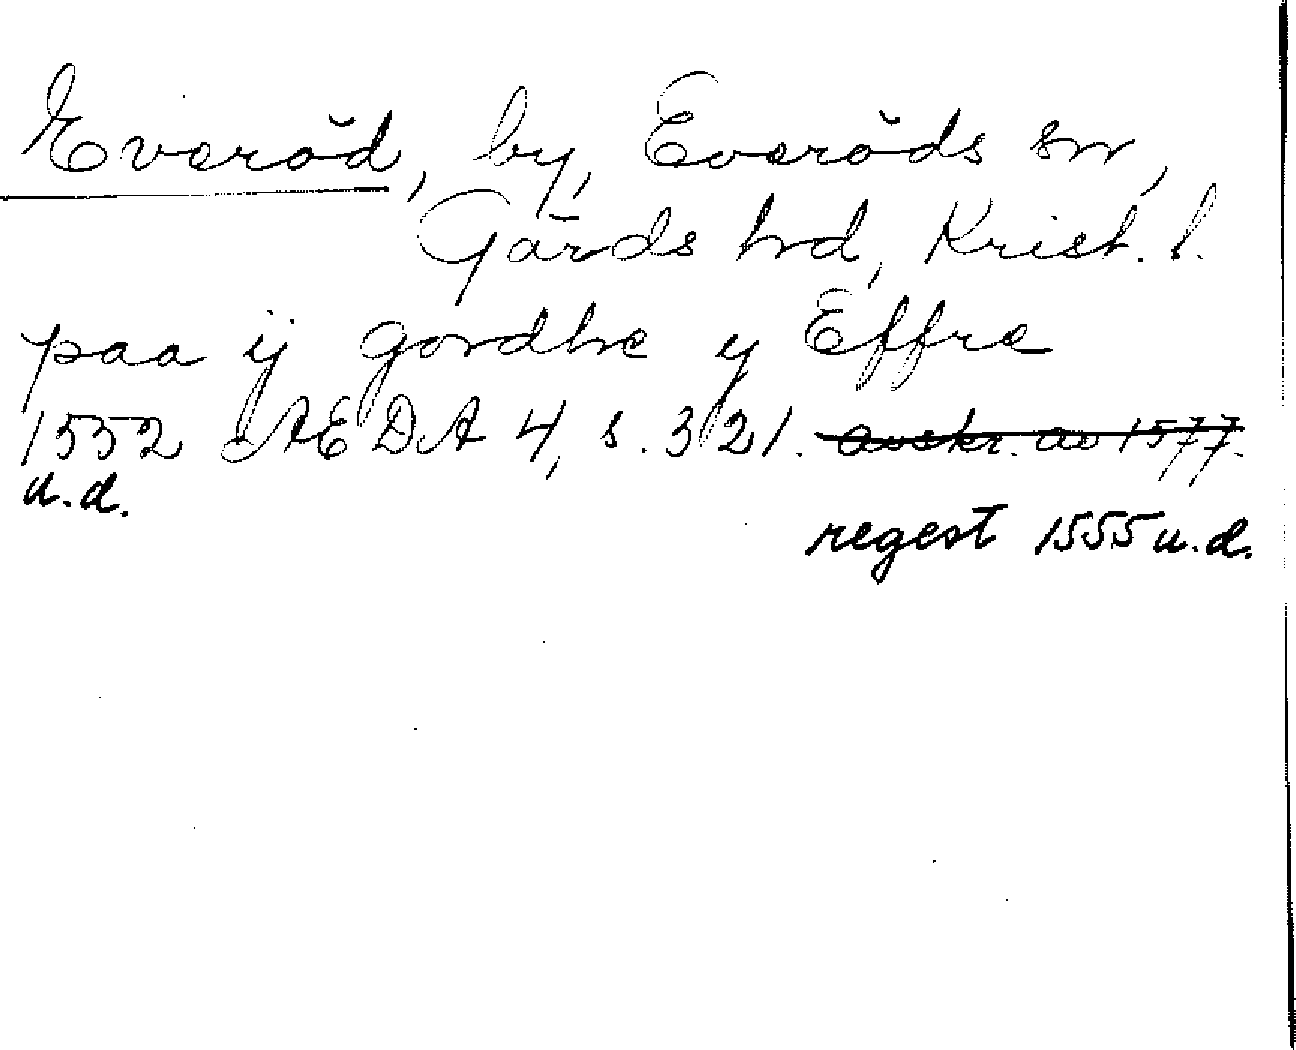 Everöd, by, Everöds sn,
Gärds hrd, Krist. l.
paa ij gordhe y Effre
1552 ÆDA 4, s. 321. avskr. av 1577.
u.d.
regest 1555 u.d.